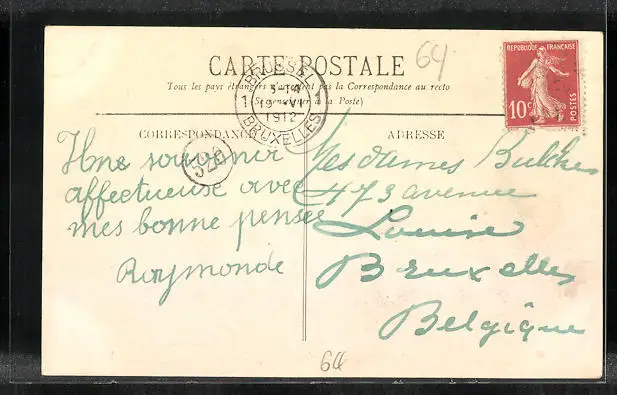 64
CARTE POSTALE
Tous les pays étrangers n'acceptent pas la Correspondance au recto
(Se renseigner à la Poste)
REPUBLIQUE FRANÇAISE
10c
POSTES
BRUSSEL
1 1
1912
BRUXELLES
CORRESPONDANCE
ADRESSE
Une souvenir
affectueuse avec
mes bonne pensée
Raymonde
Mesdames Bulcke
473 avenue
Louise
Bruxelles
Belgique
64